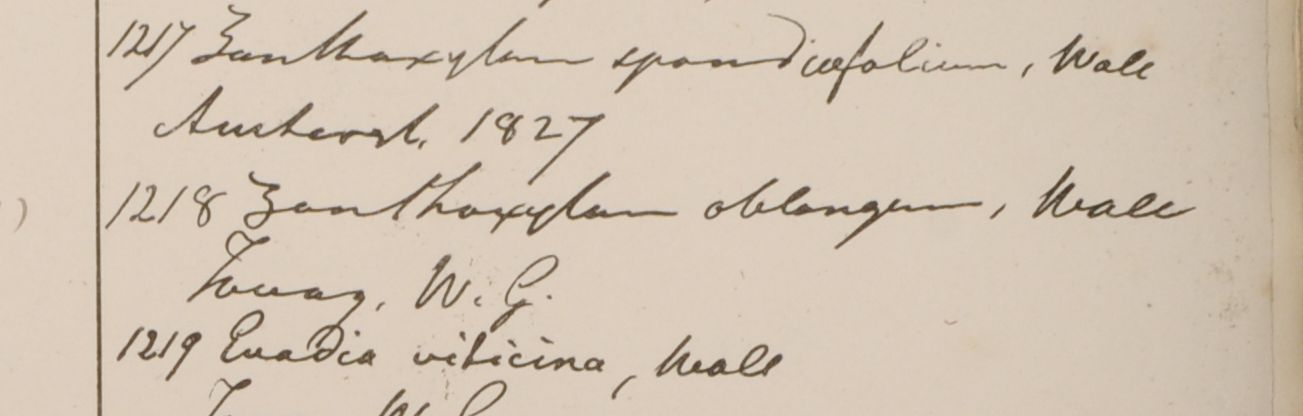 1217 Zanthoxylum spondiæfolium, Wall
Amherst, 1827
1218 Zanthoxylum oblongum, Wall
Tavoy, W. G.
1219 Evadia viticina, Wall